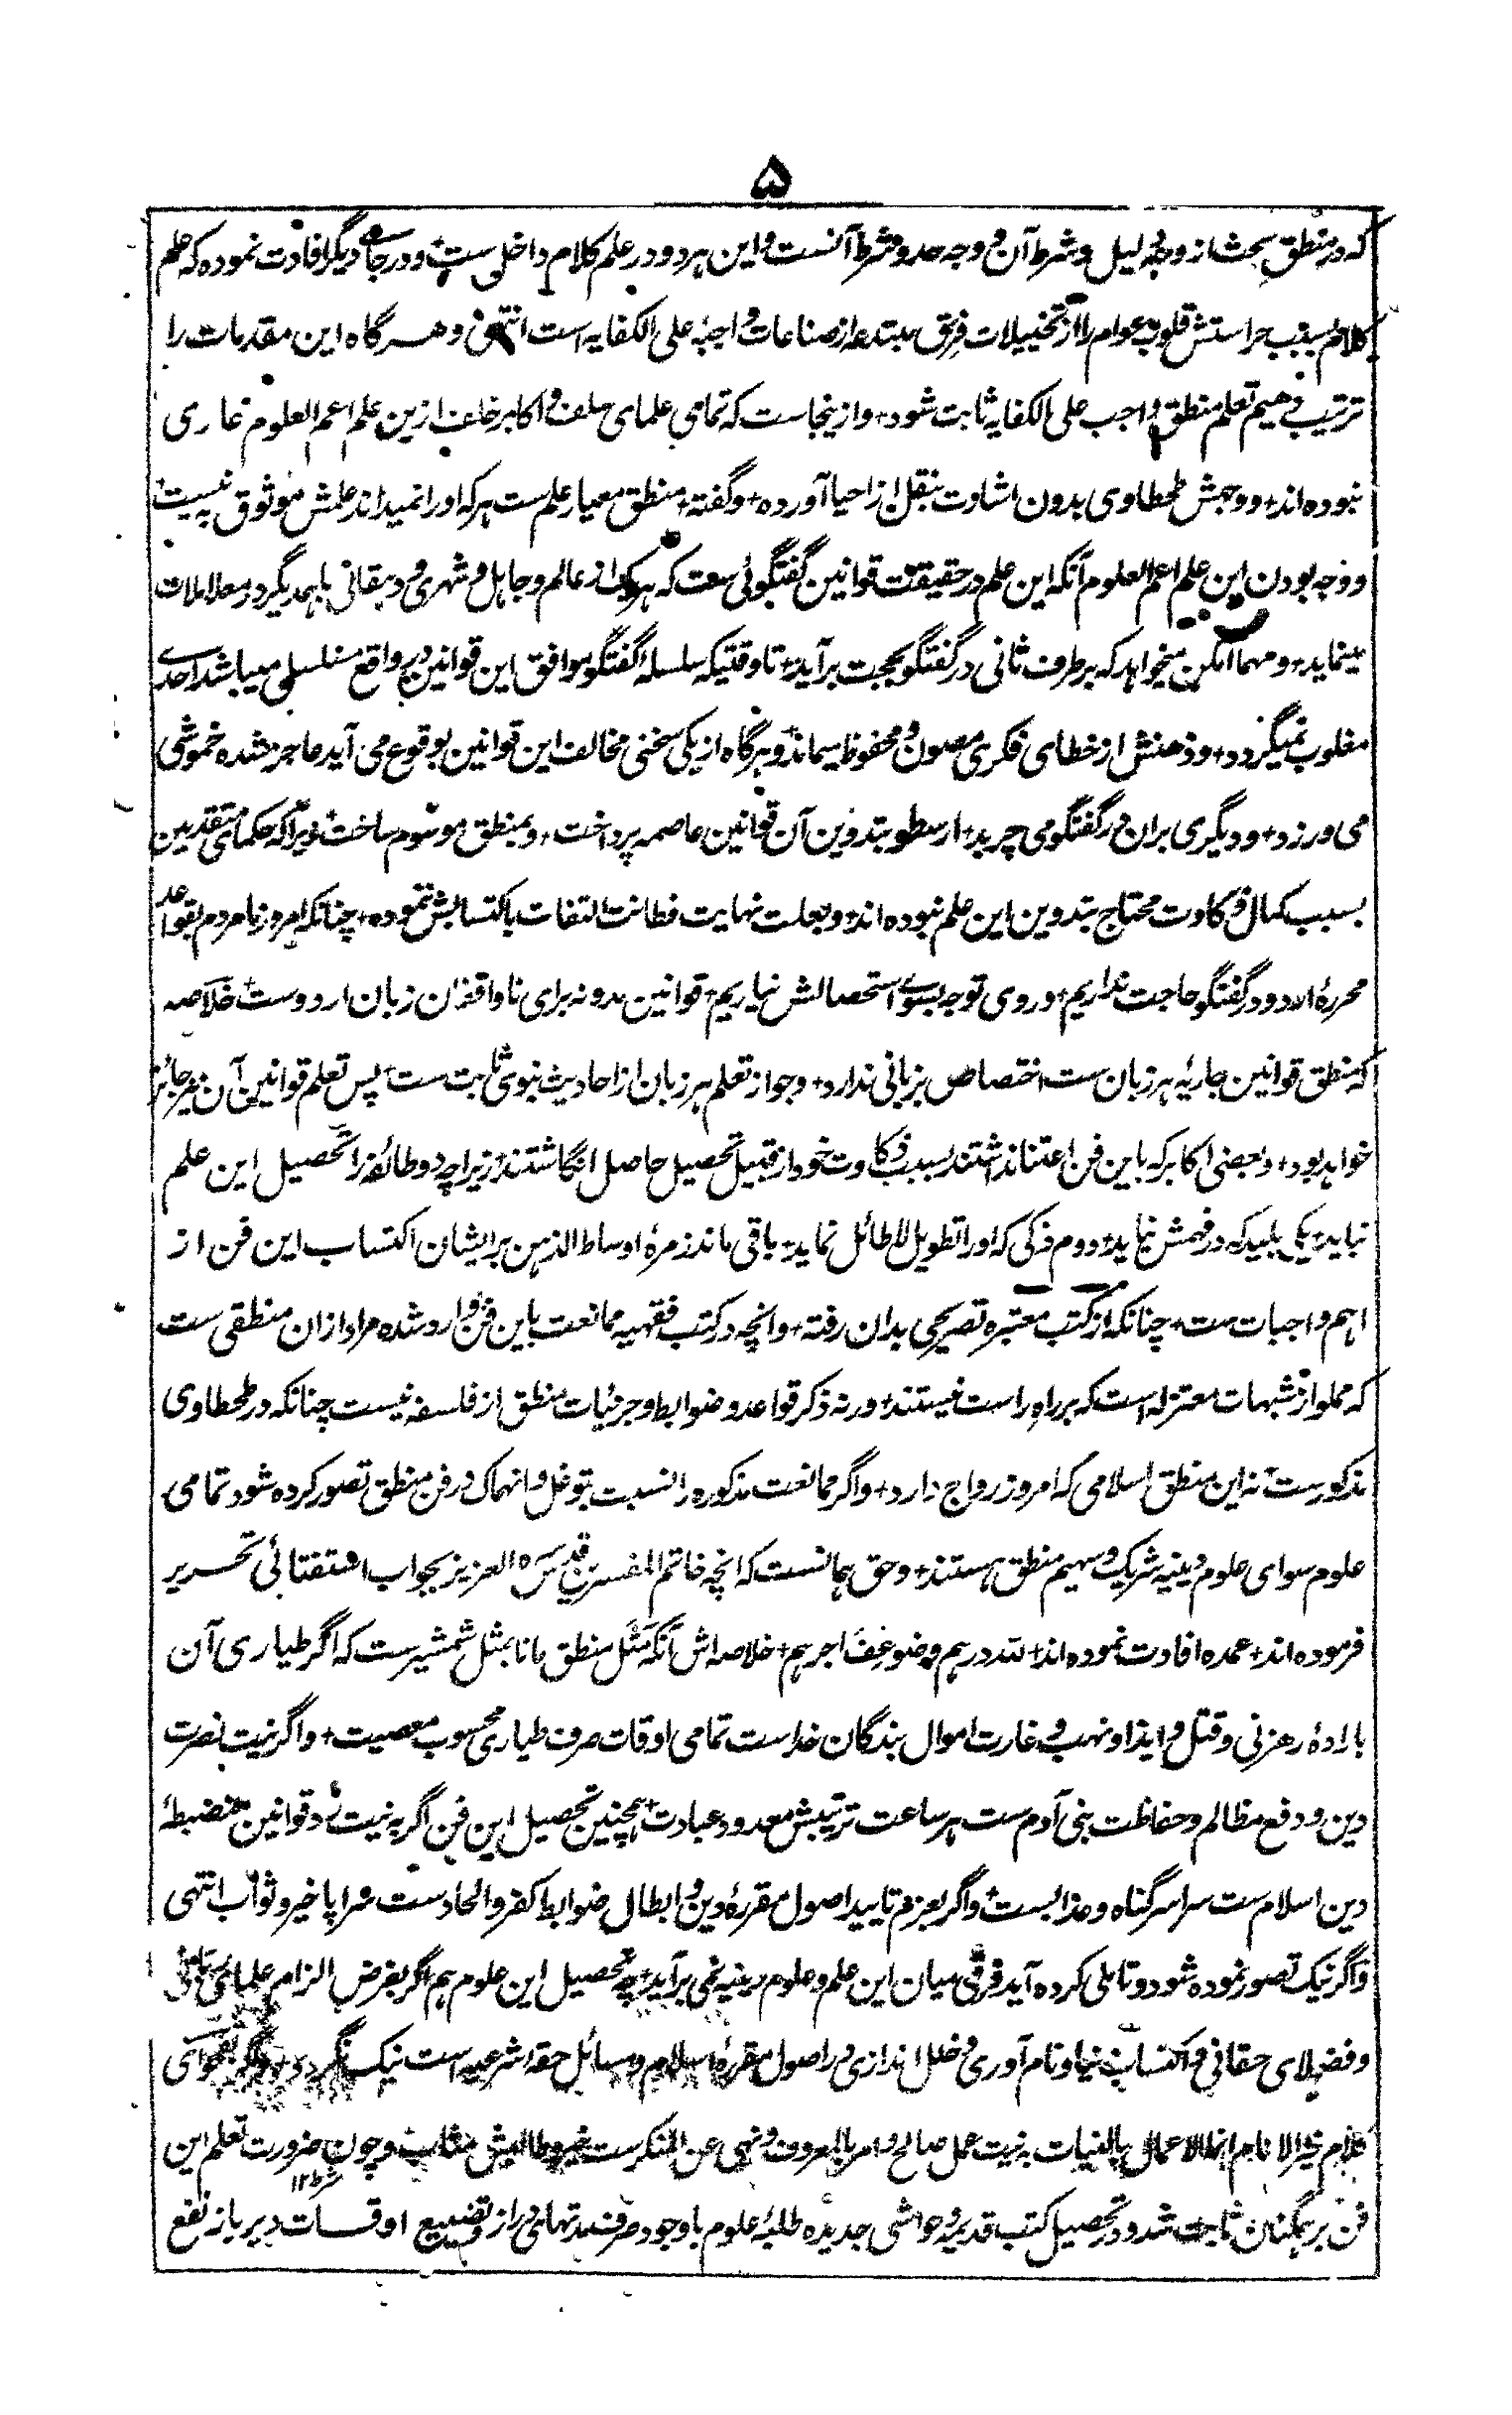 ۵
که در منطق بحث از وجه دلیل و شرط آن و وجه حد و شرط آنست و این هر دو در علم کلام داخلی ست و در جای دیگر افادت نموده که علم
کلام بسبب حراستش قلوب عوام را از تخییلات فرق مبتدعه از صناعات واجبه علی الکفایه است انتهی و هر گاه این مقدمات را
ترتیب دهیم تعلم منطق واجب علی الکفایه ثابت شود + و ازینجاست که تمامی علمای سلف و اکابر خلف ازین علم اعم العلوم عاری
نبوده اند + و وجهش طحطاوی بدون اشارت بنقل از احیا آورده + و گفته + منطق معیار علم ست هر که او را نمیداند علمش موثوق به نیست
و وجه بودن این علم اعم العلوم آنکه این علم در حقیقت قوانین گفتگوئی ست که هر یک از عالم و جاهل و شهری و دهقانی باهمدیگر در معاملات
مینماید + و مهما امکن میخواهد که بر طرف ثانی در گفتگو بحجت برآید + تا وقتیکه سلسله گفتگو موافق این قوانین در واقع مسلسل میباشد احدے
مغلوب نمیگردد + و ذهنش از خطای فکری مصون و محفوظ میماند و هر گاه از یکی سخنی مخالف این قوانین بوقوع می آید عاجز شده خموشی
می ورزد + و دیگری بران در گفتگو می چربد + ارسطو بتدوین آن قوانین عاصمه پرداخت + و بمنطق موسوم ساخت زیرا که حکمای متقدمین
بسبب کمال ذکاوت محتاج بتدوین این علم نبوده اند + و بعلت نهایت فطانت التفات باکتسابش ننموده + چنانکه امروز ما مردم بقواعد
محرره اردو در گفتگو حاجت نداریم + و روی توجه بسوی استحصالش نیاریم + قوانین مدونه برای ناواقفان زبان اردوست خلاصه
که منطق قوانین جاریه هر زبان ست اختصاص بزبانی ندارد + و جواز تعلم هر زبان از احادیث نبوی ثابت ست پس تعلم قوانین آن نیز جائز
خواهد بود + و بعضی اکابر که باین فن اعتنا نداشتند بسبب ذکاوت خود از قبیل تحصیل حاصل انگاشتند زیرا چه دو طائفه را تحصیل این علم
نباید + یکی بلید که در فهمش نیاید + دوم ذکی که او را تطویل لا طائل نماید + باقی ماند زمرهٔ اوساط الذهن برایشان اکتساب این فن از
اهم واجبات ست + چنانکه از کتب معتبره تصریحی بدان رفته + و انچه در کتب فقهیه ممانعت باین فن وارد شده مراد ازان منطقی ست
که مملو از شبهات معتزله است که بر راه راست نیستند + ورنه ذکر قواعد و ضوابط و جزئیات منطق از فلسفه نیست چنانکه در طحطاوی
مذکورست نه این منطق اسلامی که امروز رواج دارد + و اگر ممانعت مذکوره را نسبت بتوغل و انهماک در فن منطق تصور کرده شود تمامی
علوم سوای علوم دینیه شریک و سهیم منطق هستند + و حق همانست که انچه خاتم المفسرین قدس سره العزیز بجواب استفتائی تحریر
فرموده اند + عمده افادت نموده اند + لله درهم و ضوعف اجرهم + خلاصه اش آنکه مَثَل منطق مانا بمثل شمشیرست که اگر طیاری آن
بارادهٔ رهزنی و قتل و ایذا و نهب و غارت اموال بندگان خداست تمامی اوقات صرف طیاری محسوب معصیت + و اگر نیت نصرت
دین و دفع مظالم و حفاظت بنی آدم ست هر ساعت ترتیبش معدود عبادت + همچنین تحصیل این فن اگر به نیت رد قوانین منضبطهٔ
دین اسلام ست سراسر گناه و عذابست و اگر بعزم تایید اصول مقررهٔ دین و ابطال ضوابط کفر و الحادست سراپا خیر و ثواب انتهی
و اگر نیک تصور نموده شود و تاملی کرده آید فرقی میان این علم و علوم دینیه نمی برآید + چه تحصیل این علوم هم اگر بغرض الزام علمای
و فضلای حقانی و اکتساب دنیا و نام آوری و خلل اندازی در اصول مقررهٔ اسلام و مسائل حقه شرعیه است نیک نگردد +
کلام خیر الانام انما الاعمال بالنیات به نیت عمل صالح و امر بالمعروف و نهی عن المنکرست و چون ضرورت تعلم این
فن بر همگنان ثابت شد و در تحصیل کتب قدیمه و حواشی جدیده طلبهٔ علوم باوجود صرف مدتهای دراز و تضییع اوقات دیر باز نفع